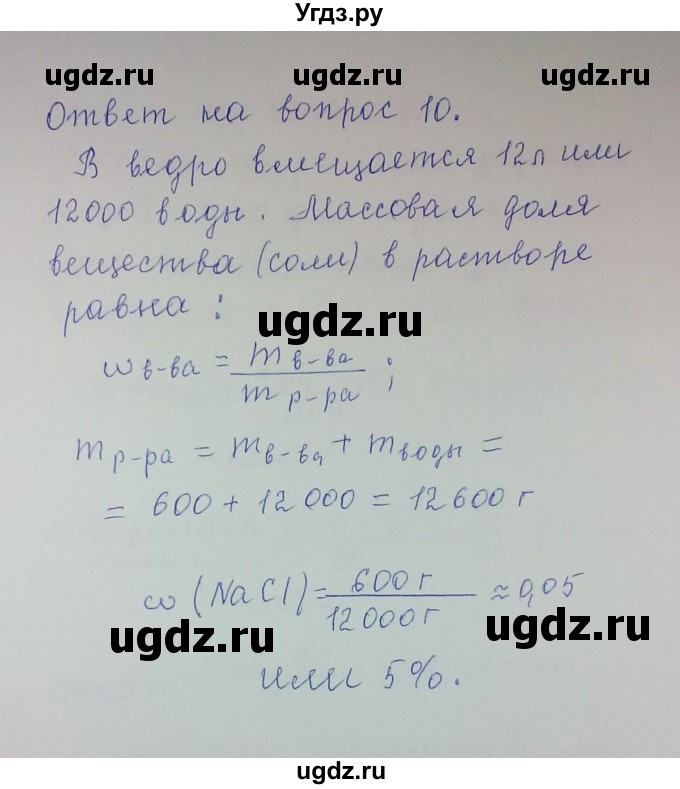 Угдз.ру
ugdz.ru ugdz.ru ugdz.ru
Ответ на вопрос 10.
В ведро вмещается 12л или
12000 воды. Массовая доля
вещества (соли) в растворе
равна :
ugdz.ru
ω в-ва = m в-ва / m р-ра ;
m р-ра = m в-ва + m воды =
= 600 + 12 000 = 12 600 г
ω (NaCl) = 600 г / 12 000 г ≈ 0,05
ugdz.ru ugdz.ru
или 5%.
ugdz.ru